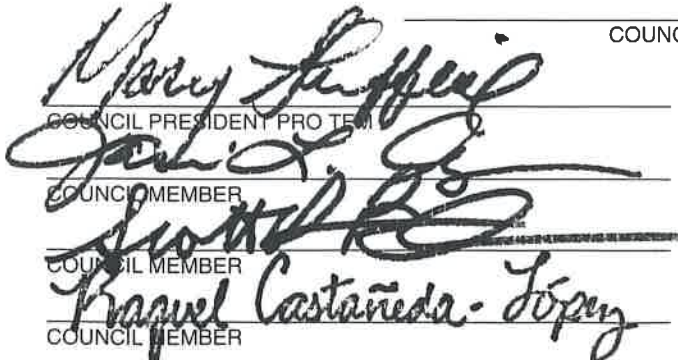 COUNC
Mary Sheffield
COUNCIL PRESIDENT PRO TEM
L.
COUNCIL MEMBER
Scott
COUNCIL MEMBER
Raquel Castañeda-López
COUNCIL MEMBER